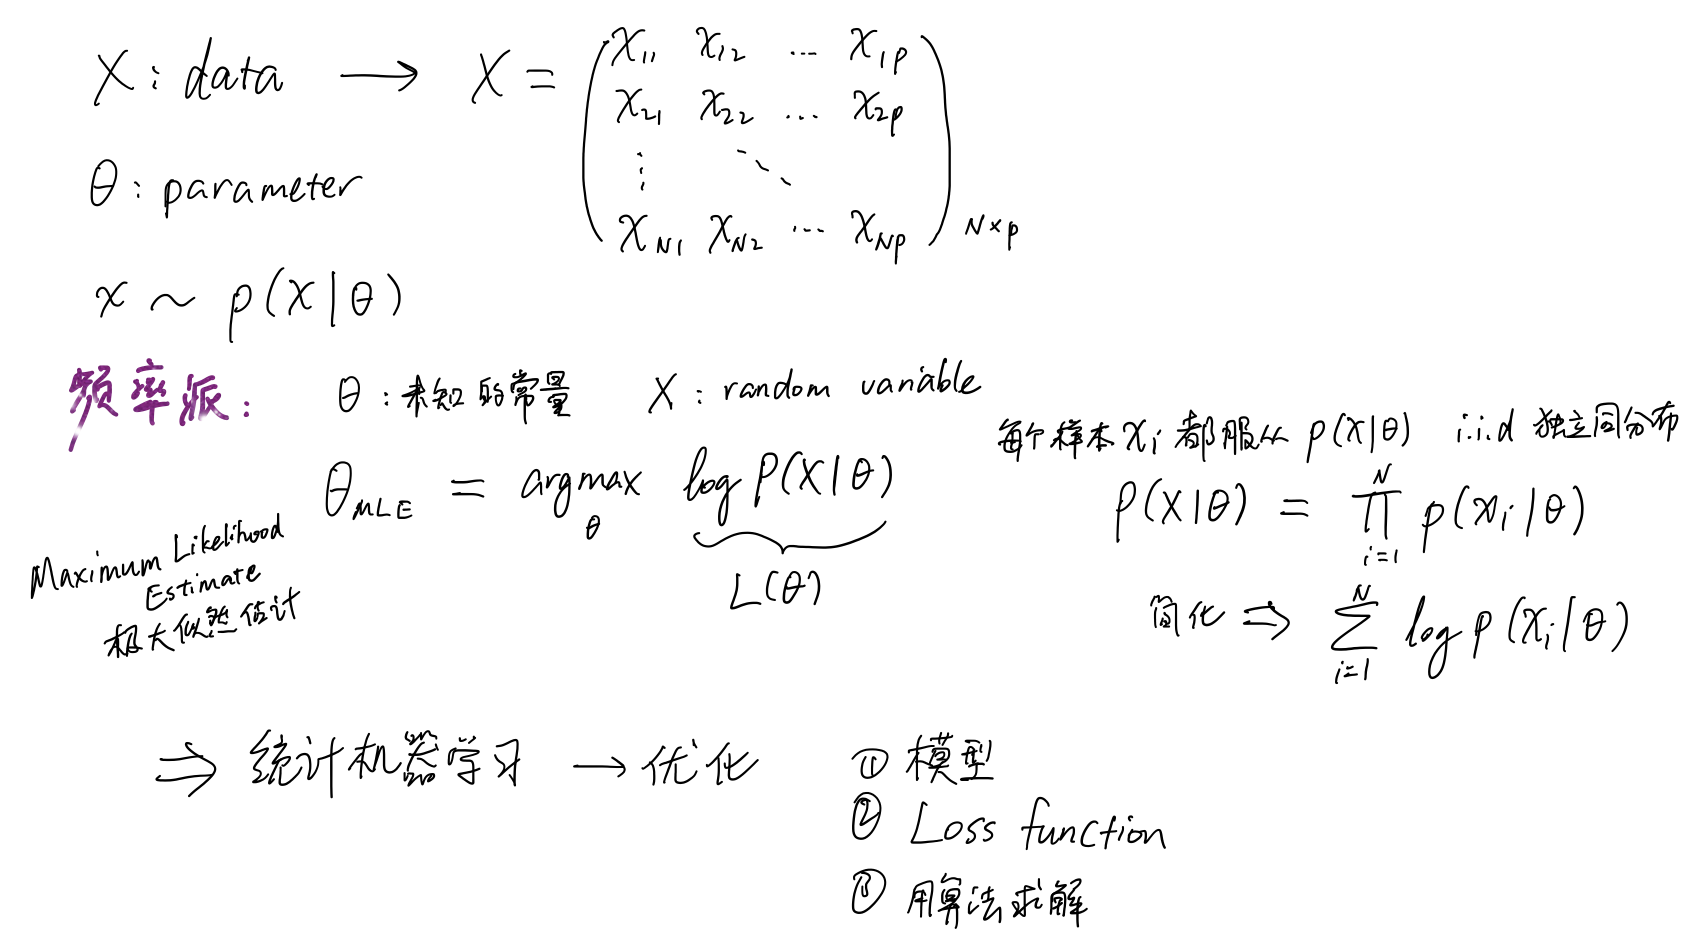 X : data → X = ( x₁₁ x₁₂ ... x₁ₚ
x₂₁ x₂₂ ... x₂ₚ
⋮ ⋱
x_N1 x_N2 ... x_Np )_N×p
θ : parameter
x ~ p(X|θ)
频率派: θ : 未知的常量 X : random variable
θ_MLE = argmax_θ log P(X|θ)
L(θ)
Maximum Likelihood
Estimate
极大似然估计
每个样本 x_i 都服从 p(X|θ) i.i.d 独立同分布
P(X|θ) = ∏_{i=1}^{N} p(x_i|θ)
简化 ⇒ ∑_{i=1}^{N} log p(x_i|θ)
⇒ 统计机器学习 → 优化 ① 模型
② Loss function
③ 用算法求解